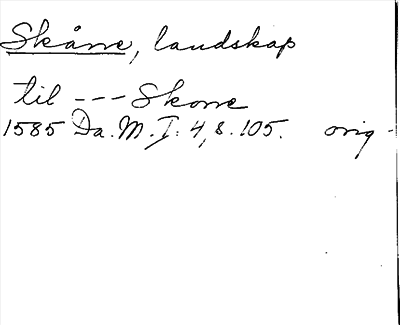 Skåne, landskap
til --- Skone
1585 Da. M. I: 4, s. 105. orig.